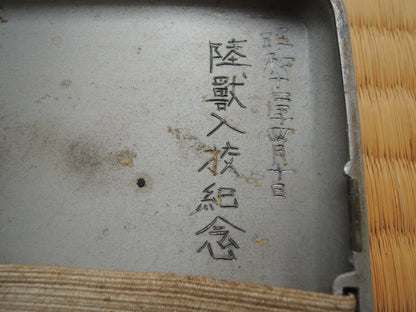 昭和十三年四月十日
陸獸入校紀念